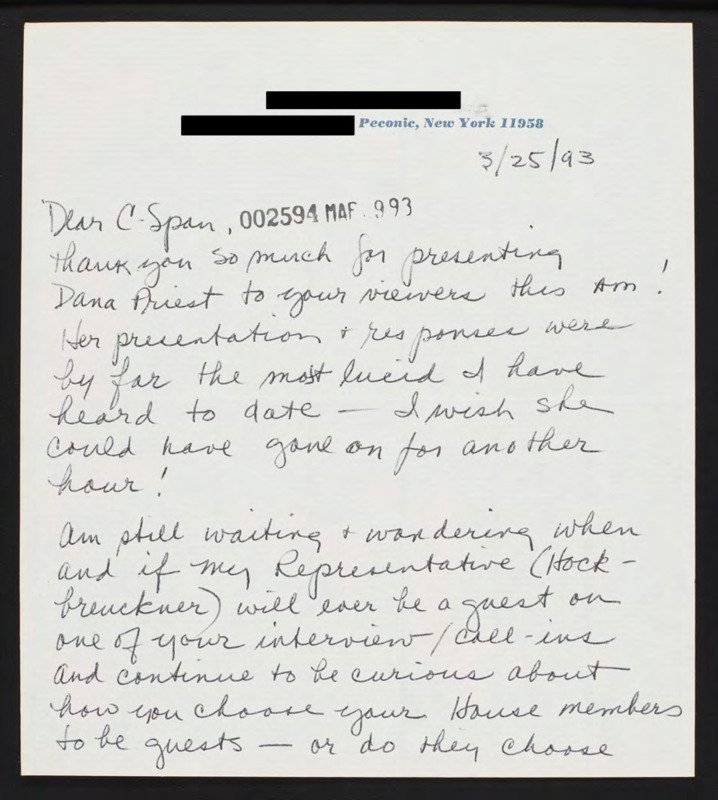 Peconic, New York 11958
3/25/93
Dear C-Span, 002594 MAR 993
thank you so much for presenting
Dana Priest to your viewers this AM!
Her presentation & responses were
by far the most lucid I have
heard to date — I wish she
could have gone on for another
hour!
Am still waiting & wondering when
and if my Representative (Hock-
breuckner) will ever be a guest on
one of your interview/call-ins
and continue to be curious about
how you choose your House members
to be guests — or do they choose